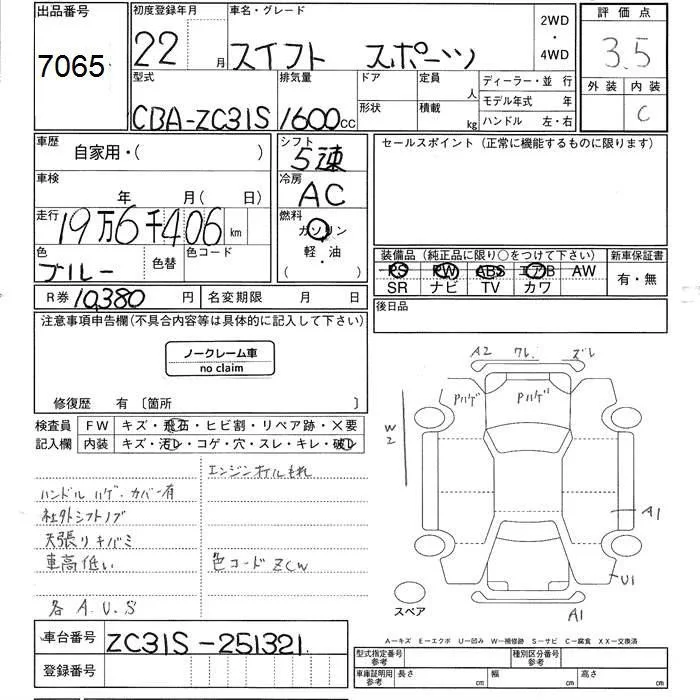 出品番号
7065
初度登録年月
22 月
車名・グレード
スイフト スポーツ
2WD
・
4WD
評価点
3.5
外装 内装
C
型式
CBA-ZC31S
排気量
1600cc
ドア
形状
定員
人
積載
kg
ディーラー・並 行
モデル年式 年
ハンドル 左・右
車歴
自家用・( )
車検
年 月( 日)
走行
19万6千406 km
色
ブルー
色替
色コード
シフト
5速
冷房
AC
燃料
ガソリン
軽・油
( )
セールスポイント(正常に機能するものに限ります)
装備品(純正品に限り○をつけて下さい)
PS PW ABS エアB AW
SR ナビ TV カワ
新車保証書
有・無
R券 10,380 円
名変期限 月 日
後日品
注意事項申告欄(不具合内容等は具体的に記入して下さい)
ノークレーム車
no claim
修復歴 有〔箇所 〕
検査員
記入欄
FW キズ・飛石・ヒビ割・リペア跡・×要
内装 キズ・汚レ・コゲ・穴・スレ・キレ・破レ
ハンドル ハゲ・カバー有
社外シフトノブ
天張りキバミ
車高低い
各 A.U.S
エンジンオイルもれ
色コード ZCW
A2 ワレ. ズレ
Pハゲ
Pハゲ
W2
A1
U1
A1
スペア
A―キズ E―エクボ U―凹み W―補修跡 S―サビ C―腐食 XX―交換済
車台番号
ZC31S-251321
登録番号
型式指定番号
参考
種別区分番号
参考
車庫証明用
参考
長さ cm
幅 cm
高さ cm